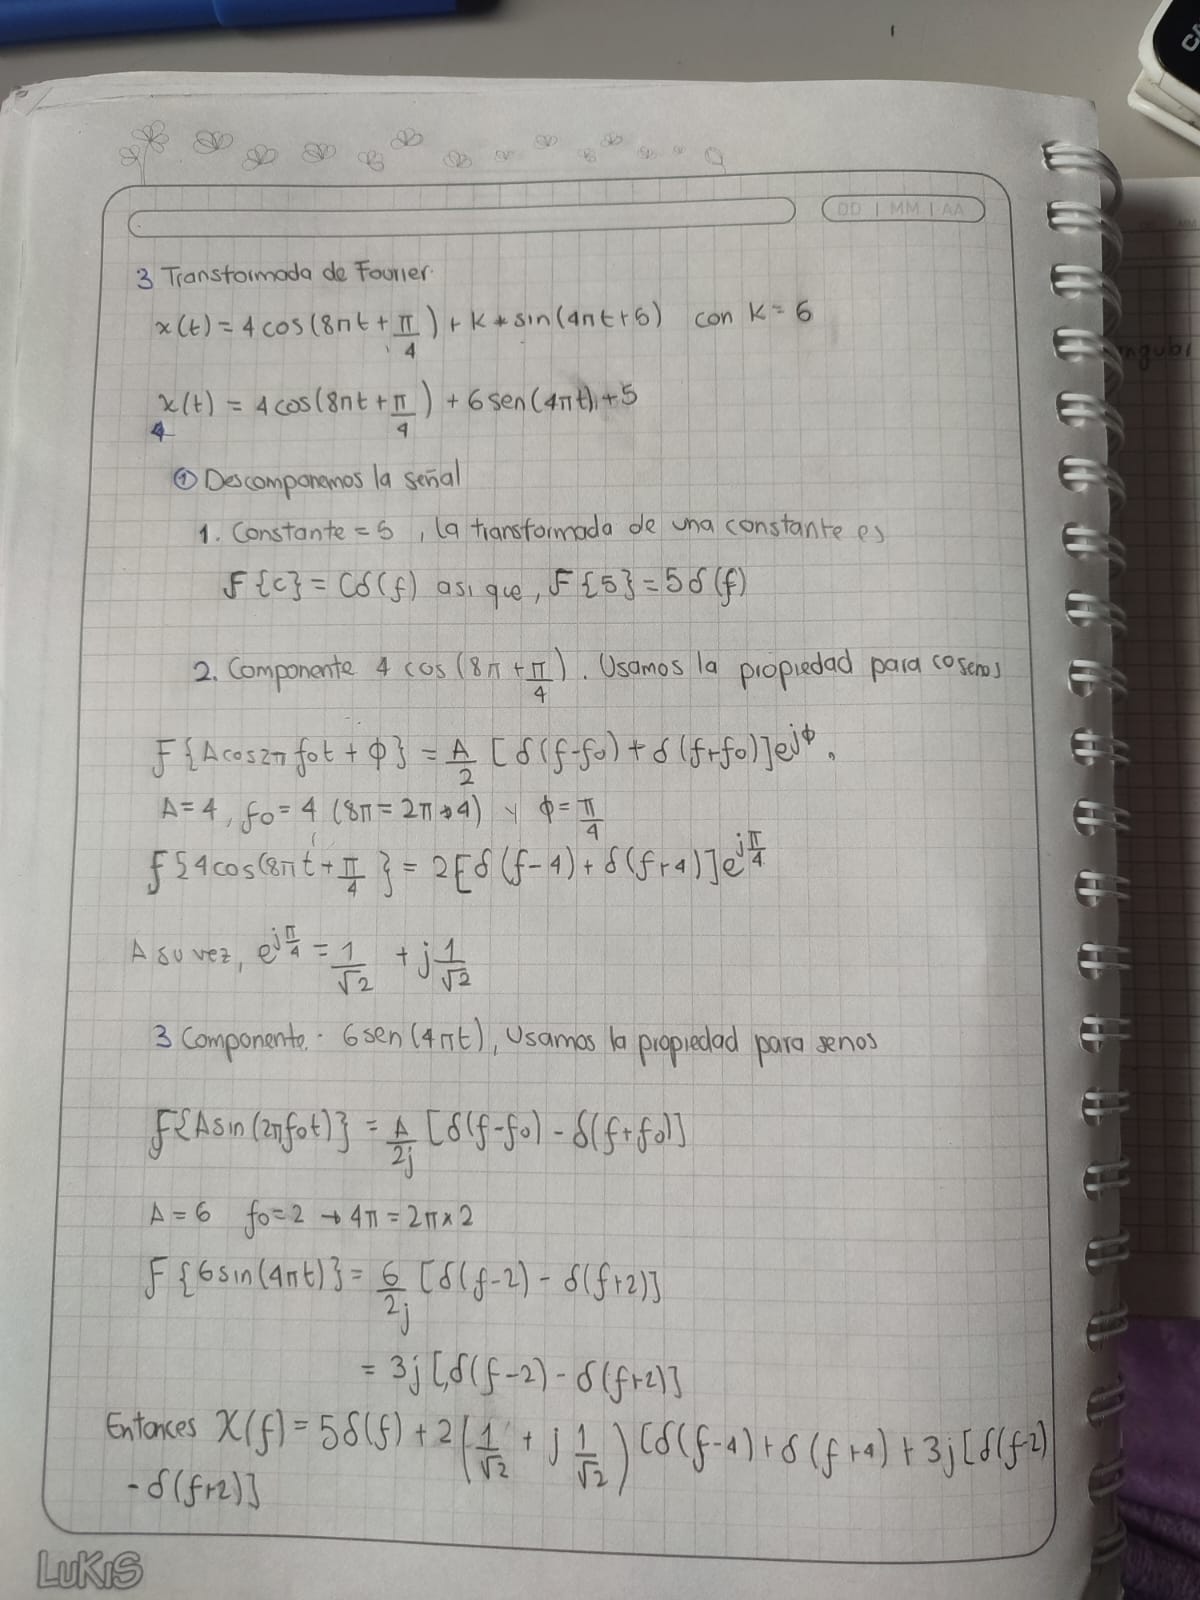 DD | MM | AA
3 Transformada de Fourier.
x(t) = 4 cos(8πt + π/4) + K * sin(4πt + 5) con K = 6
x(t) = 4 cos(8πt + π/4) + 6 sen(4πt) + 5
① Descomponemos la señal
1. Constante = 5, la transformada de una constante es
F{c} = Cδ(f) asi que, F{5} = 5δ(f)
2. Componente 4 cos(8π + π/4). Usamos la propiedad para cosenos
F{A cos2π fot + Φ} = A/2 [δ(f-fo) + δ(f+fo)]e^jΦ.
A = 4, fo = 4 (8π = 2π * 4) y Φ = π/4
F{4cos(8πt + π/4} = 2[δ(f-4) + δ(f+4)]e^jπ/4
A su vez, e^jπ/4 = 1/√2 + j 1/√2
3 Componente. 6 sen(4πt), Usamos la propiedad para senos
F{A sin(2πfot)} = A/2j [δ(f-fo) - δ(f+fo)]
A = 6 fo = 2 → 4π = 2π x 2
F{6 sin(4πt)} = 6/2j [δ(f-2) - δ(f+2)]
= 3j [δ(f-2) - δ(f+2)]
Entonces X(f) = 5δ(f) + 2(1/√2 + j 1/√2) [δ(f-4) + δ(f+4) + 3j [δ(f-2)
- δ(f+2)]
LUKIS